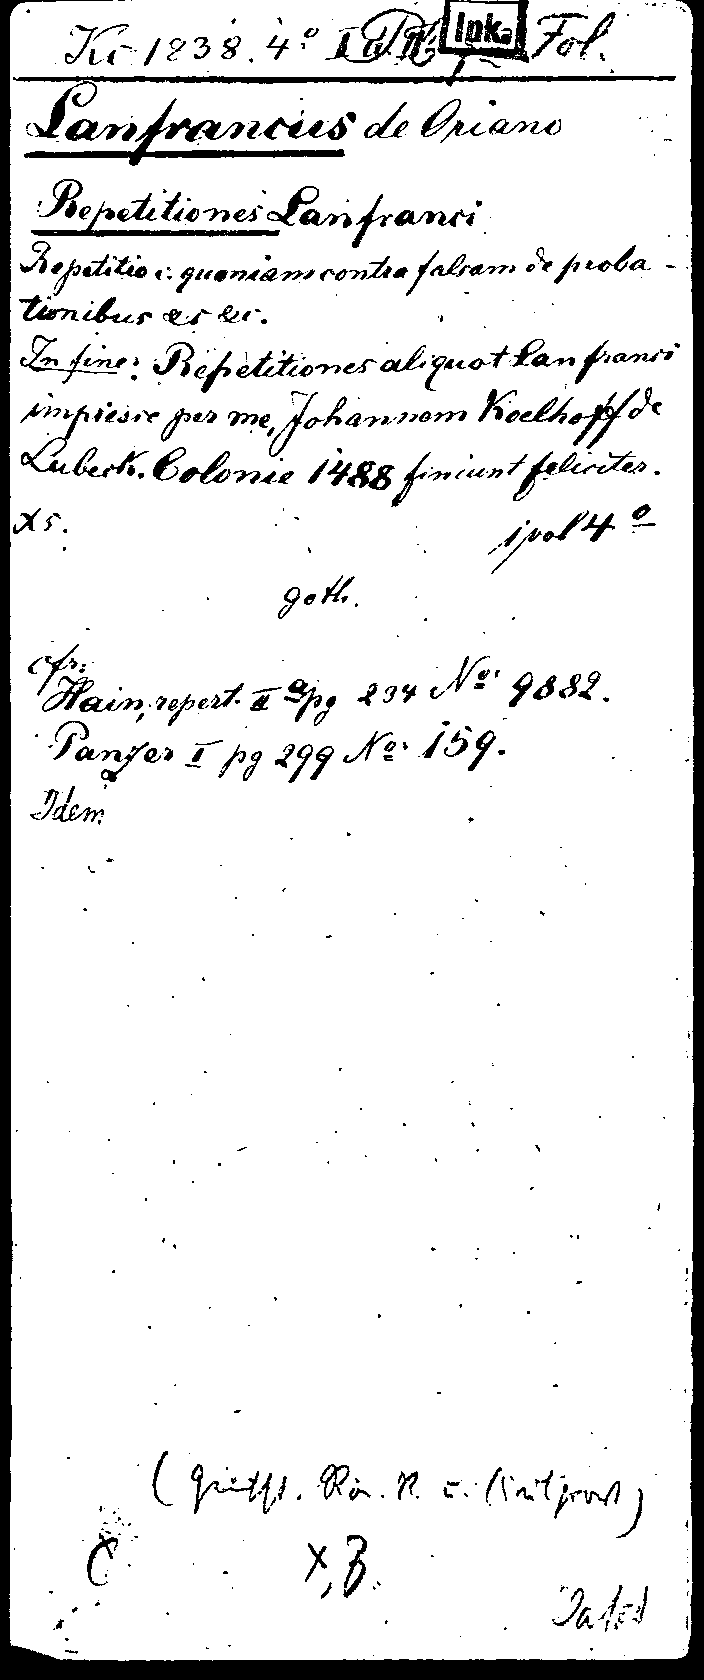 Kc 1238. 4° I Ink. Fol.
Lanfrancus de Oriano
Repetitiones Lanfranci
Repetitio c. quoniam contra falsam de proba-
tionibus &c &c.
In fine: Repetitiones aliquot Lanfranci
impresse per me, Johannem Koelhoff de
Lubeck. Colonie 1488 finiunt feliciter.
xs. 4°
goth.
cfr:
Hain, repert. II a pg 234 No. 9882.
Panzer I pg 299 No. 159.
Idem
x, B.